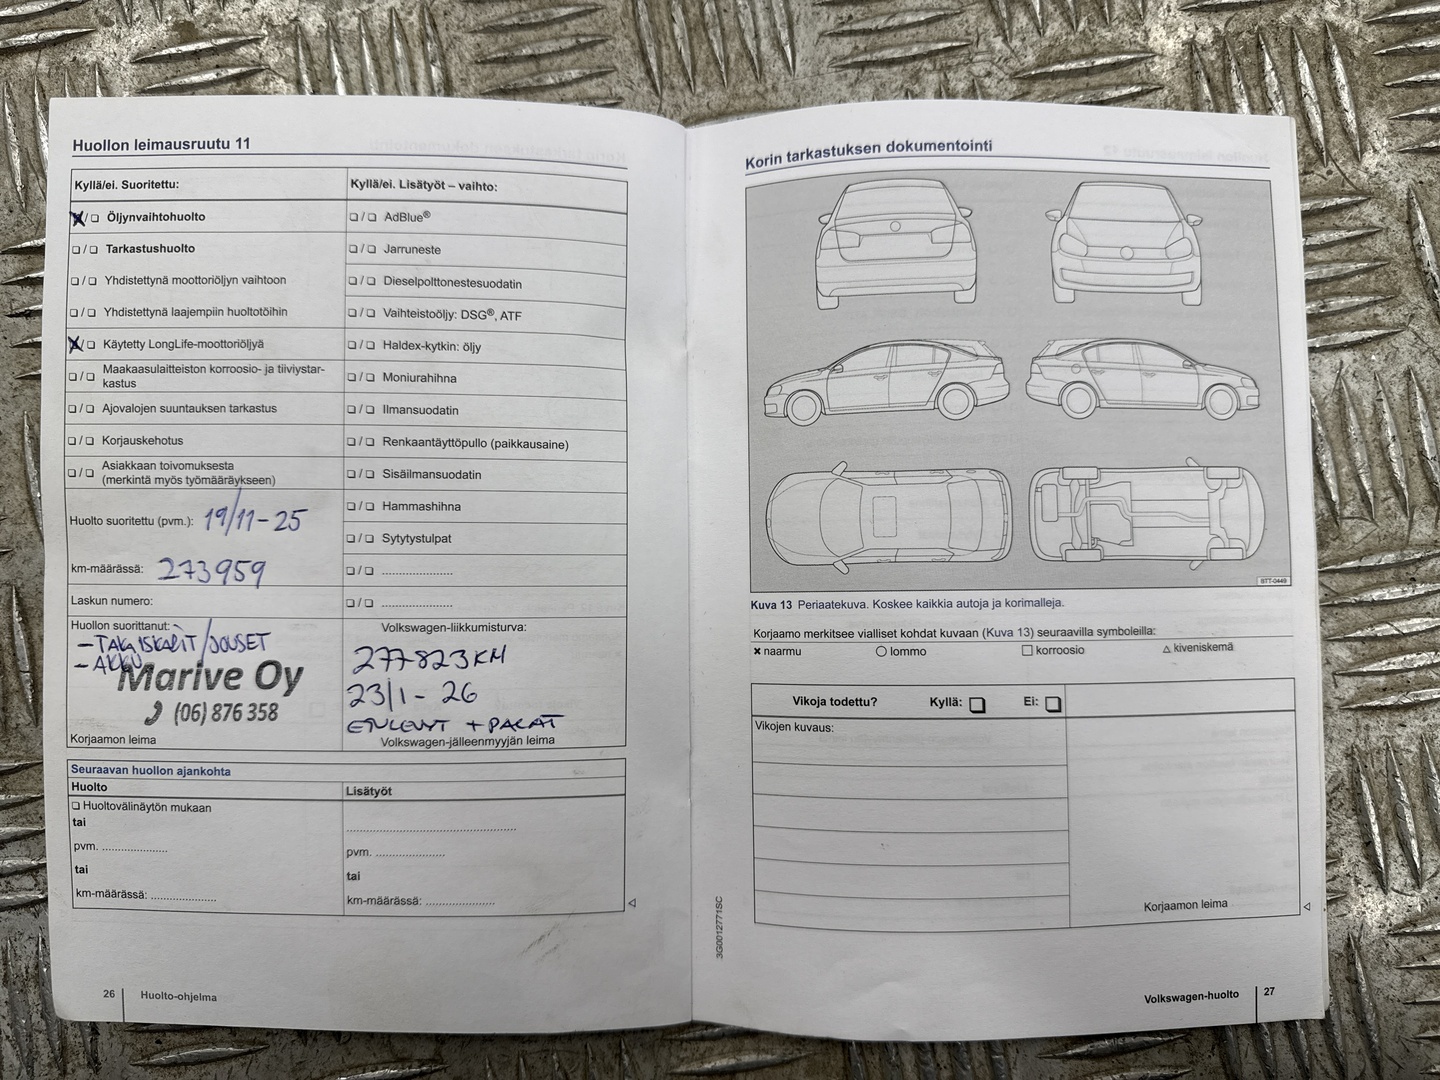 Huollon leimausruutu 11
Kyllä/ei. Suoritettu:
Öljynvaihtohuolto
Tarkastushuolto
Yhdistettynä moottoriöljyn vaihtoon
Yhdistettynä laajempiin huoltotöihin
Käytetty LongLife-moottoriöljyä
Maakaasulaitteiston korroosio- ja tiiviystar-
kastus
Ajovalojen suuntauksen tarkastus
Korjauskehotus
Asiakkaan toivomuksesta
(merkintä myös työmääräykseen)
Huolto suoritettu (pvm.): 19/11-25
km-määrässä: 273959
Laskun numero:
Huollon suorittanut:
- TAKAISKARIT/JOUSET
- AKKU
Marive Oy
(06) 876 358
Korjaamon leima
Kyllä/ei. Lisätyöt – vaihto:
AdBlue®
Jarruneste
Dieselpolttonestesuodatin
Vaihteistoöljy: DSG®, ATF
Haldex-kytkin: öljy
Moniurahihna
Ilmansuodatin
Renkaantäyttöpullo (paikkausaine)
Sisäilmansuodatin
Hammashihna
Sytytystulpat
Volkswagen-liikkumisturva:
277823 KM
23/1-26
ETULEVYT + PALAT
Volkswagen-jälleenmyyjän leima
Seuraavan huollon ajankohta
Huolto
Huoltovälinäytön mukaan
tai
pvm. ....................
tai
km-määrässä: ....................
Lisätyöt
pvm. ....................
tai
km-määrässä: ....................
26 Huolto-ohjelma
Korin tarkastuksen dokumentointi
BTT-0449
Kuva 13 Periaatekuva. Koskee kaikkia autoja ja korimalleja.
Korjaamo merkitsee vialliset kohdat kuvaan (Kuva 13) seuraavilla symboleilla:
naarmu lommo korroosio kiveniskemä
Vikoja todettu? Kyllä: Ei:
Vikojen kuvaus:
Korjaamon leima
3G0012771SC
Volkswagen-huolto 27